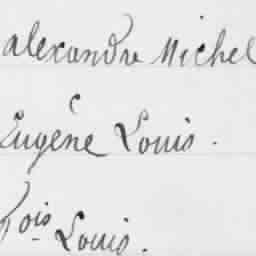 alexandre Michel
Eugène Louis.
fois Louis.